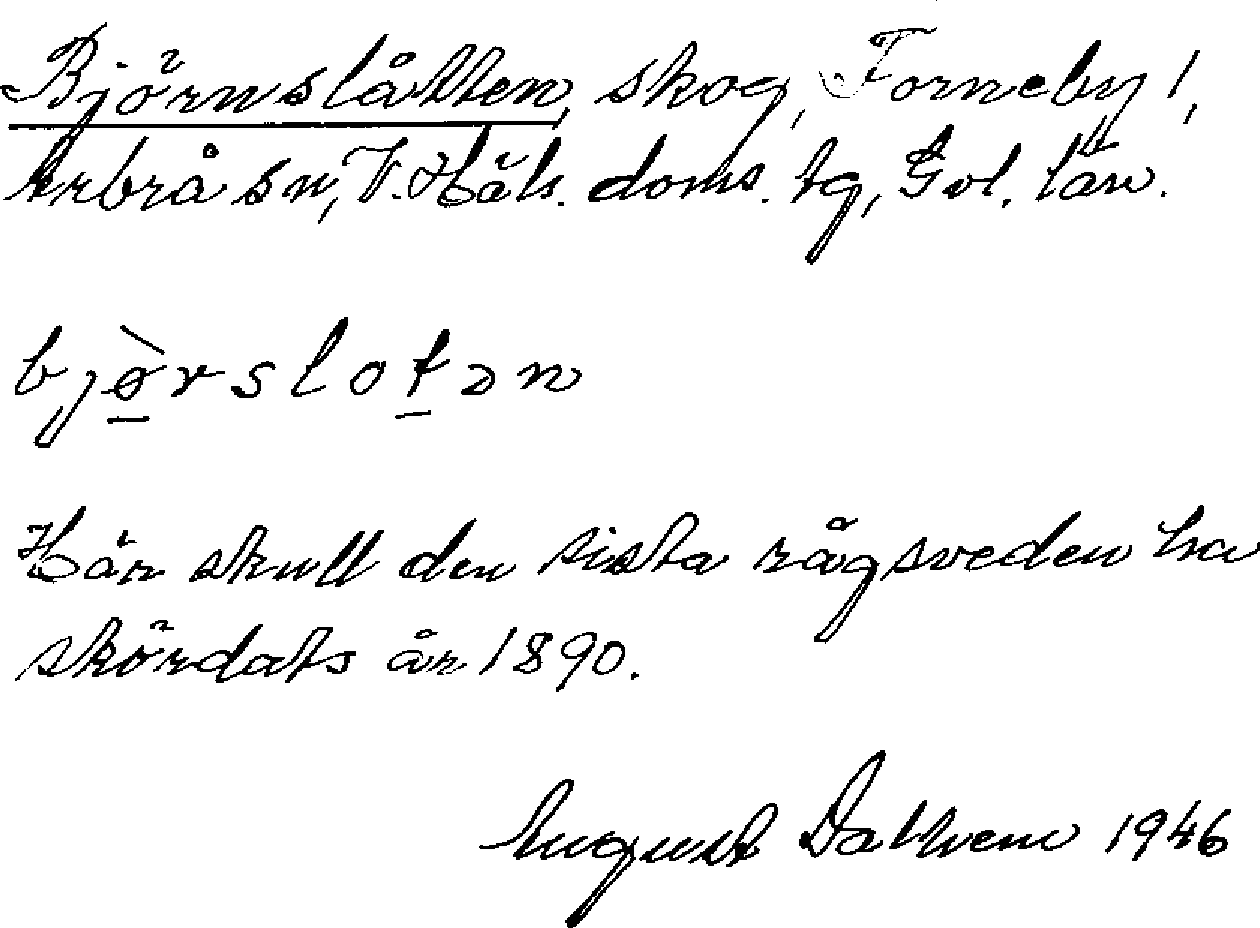 Björnslåtten, skog, Forneby 1,
Arbrå sn, V. Häls. doms. tg, Gvl. län.
bjø̱̀rsloṯən
Här skull den sista rågsveden ha
skördats år 1890.
August Dahlvem 1946